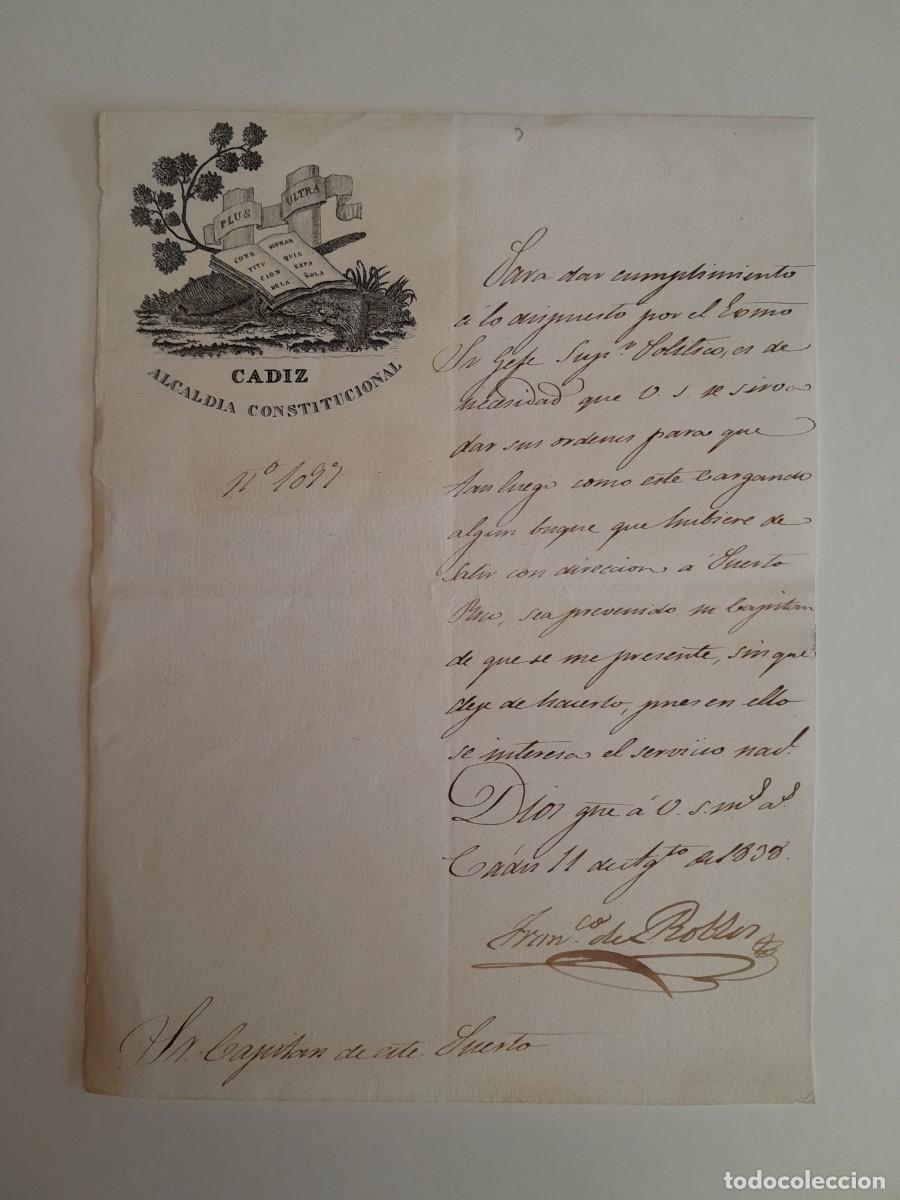 PLUS ULTRA
CONS
TITU
CION
DE LA
MONAR
QUIA
ESPA
ÑOLA
CADIZ
ALCALDIA CONSTITUCIONAL
Para dar cumplimiento
á lo dispuesto por el Exmo
Sr Gefe Supr. Politico, es de
necesidad que V. S. se sirva
dar sus ordenes para que
tan luego como esté cargando
algun buque que hubiere de
salir con direccion á Puerto
Rico, sea prevenido su Capitan
de que se me presente, sin que
deje de hacerlo, pues en ello
se interesa el servicio nacl.
Dios gue á V. S. ms. as.
Cádiz 11 de Agto de 1838.
Franco. de P. Robles
Sr. Capitan de este Puerto
todocoleccion